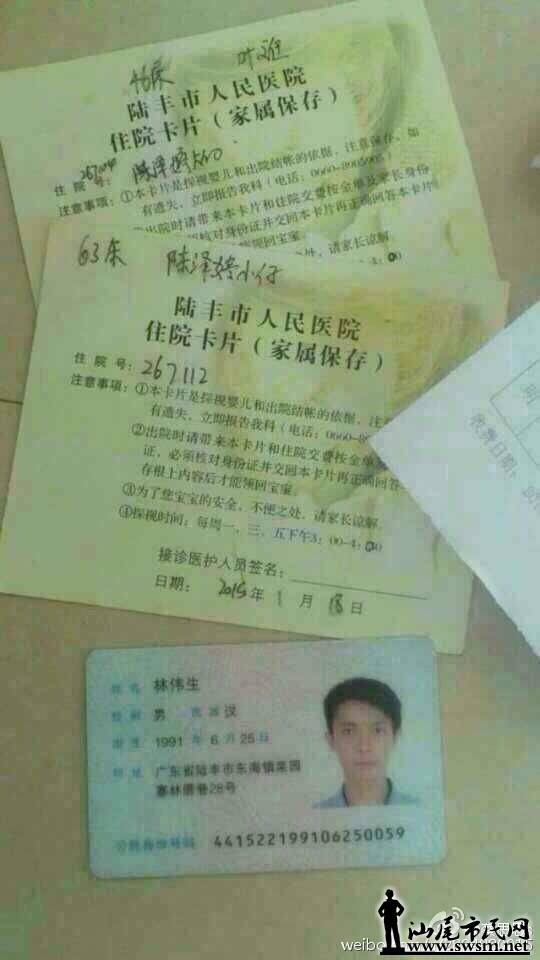 46床
陆丰市人民医院
住院卡片（家属保存）
住 院 号：
注意事项：①本卡片是探视婴儿和出院结帐的依据，注意保存、如
有遗失、立即报告我科（电话：0660-
②出院时请带来本卡片和住院交费按金单及家长身份
核对身份证并交回本卡片再正确回答本卡片
领回宝室.
处，请家长谅解.
63床 陈泽婷小仔
陆丰市人民医院
住院卡片（家属保存）
住 院 号：267112
注意事项：①本卡片是探视婴儿和出院结帐的依据，注
有遗失、立即报告我科（电话：0660-
②出院时请带来本卡片和住院交费按金单及
证，必须核对身份证并交回本卡片再正确回答
存根上内容后才能领回宝室.
③为了您宝宝的安全，不便之处，请家长谅解.
④探视时间：每周一、三、五下午3：00-4：00
接诊医护人员签名：
日期： 2015年 1 月 18 日
收费日期：
姓名 林伟生
性别 男 民族 汉
出生 1991 年 6 月 25 日
住址 广东省陆丰市东海镇菜园
寨林厝巷28号
公民身份号码 441522199106250059
汕尾市民网
www.swsm.net